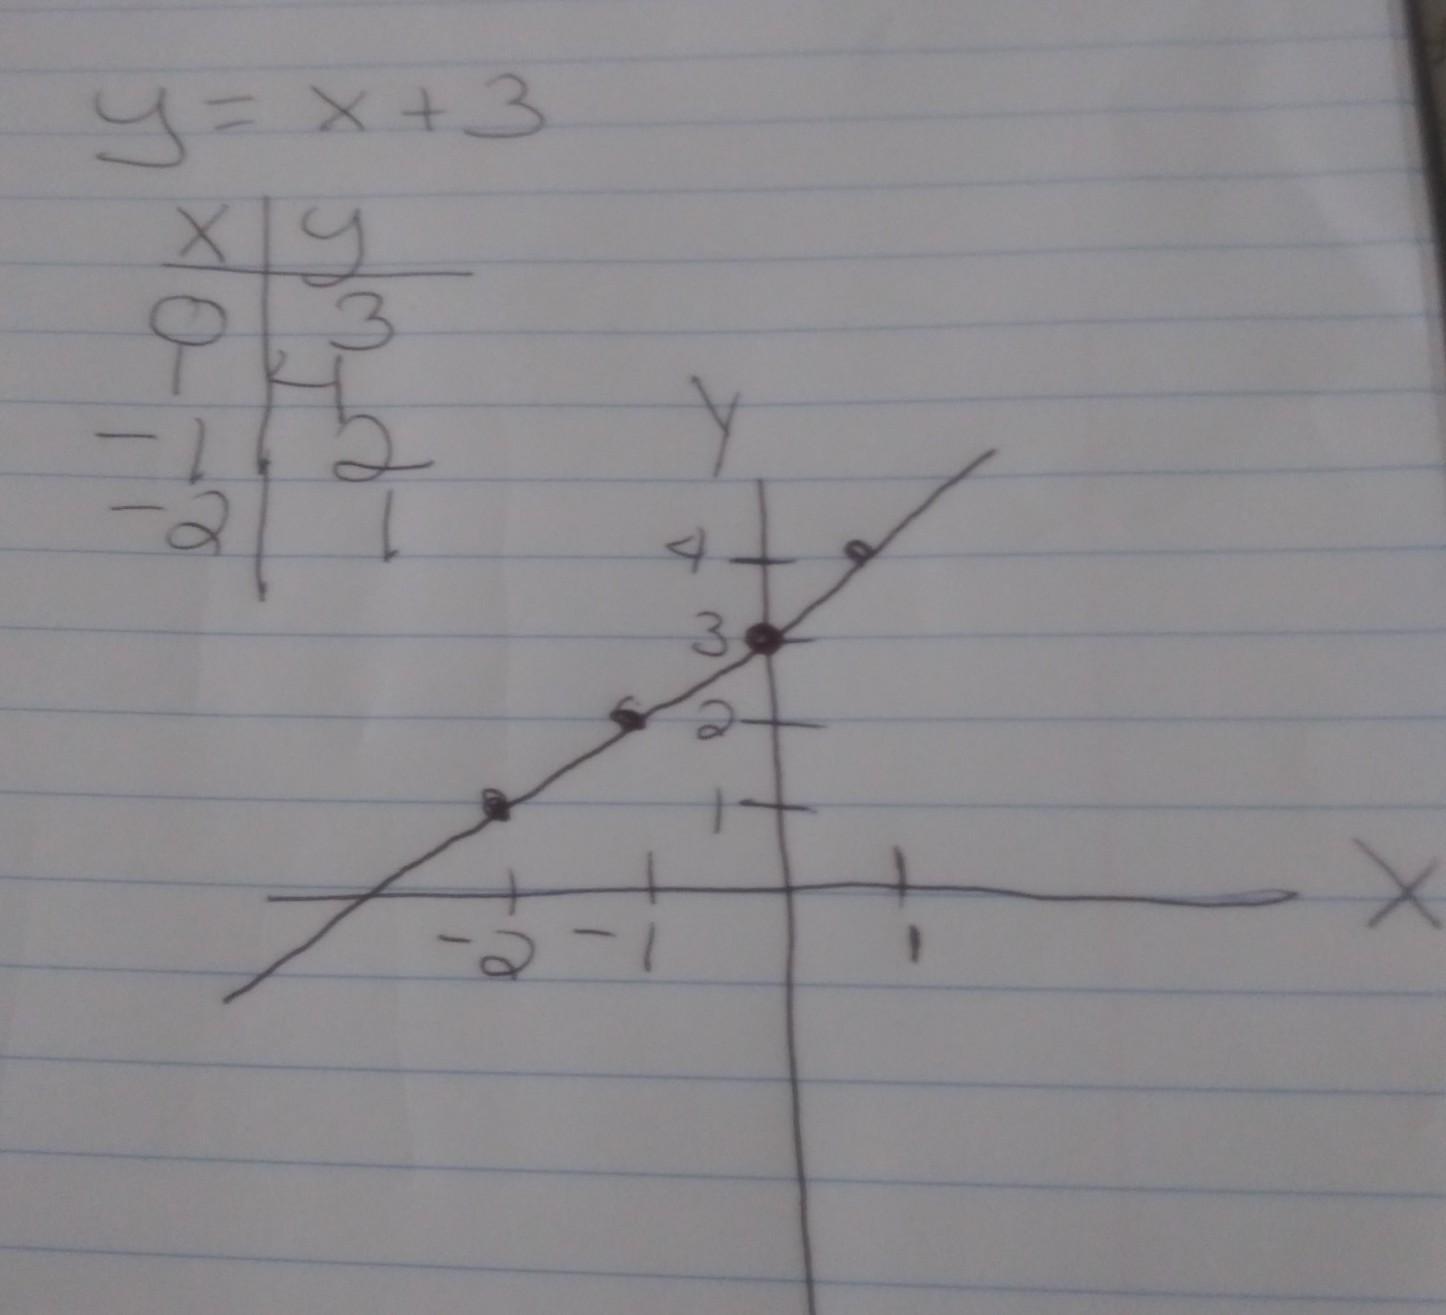 y = x + 3
x y
0 3
1 4
-1 2
-2 1
y
4
3
2
1
-2 -1 1 X